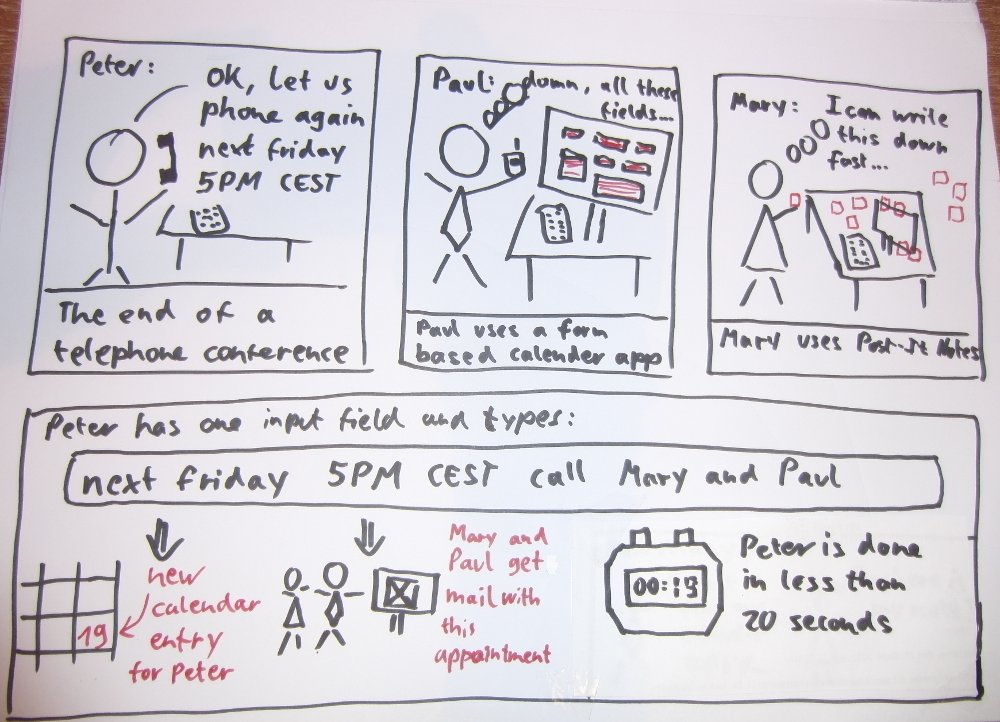 Peter:
OK, Let us
phone again
next friday
5PM CEST
The end of a
telephone conference
Paul: damn, all these
fields...
Paul uses a form
based calender app
Mary: I can write
this down
fast...
Mary uses Post-It Notes
Peter has one input field and types:
next friday 5PM CEST call Mary and Paul
19
new
calendar
entry
for Peter
Mary and
Paul get
mail with
this
appointment
00:13
Peter is done
in less than
20 seconds